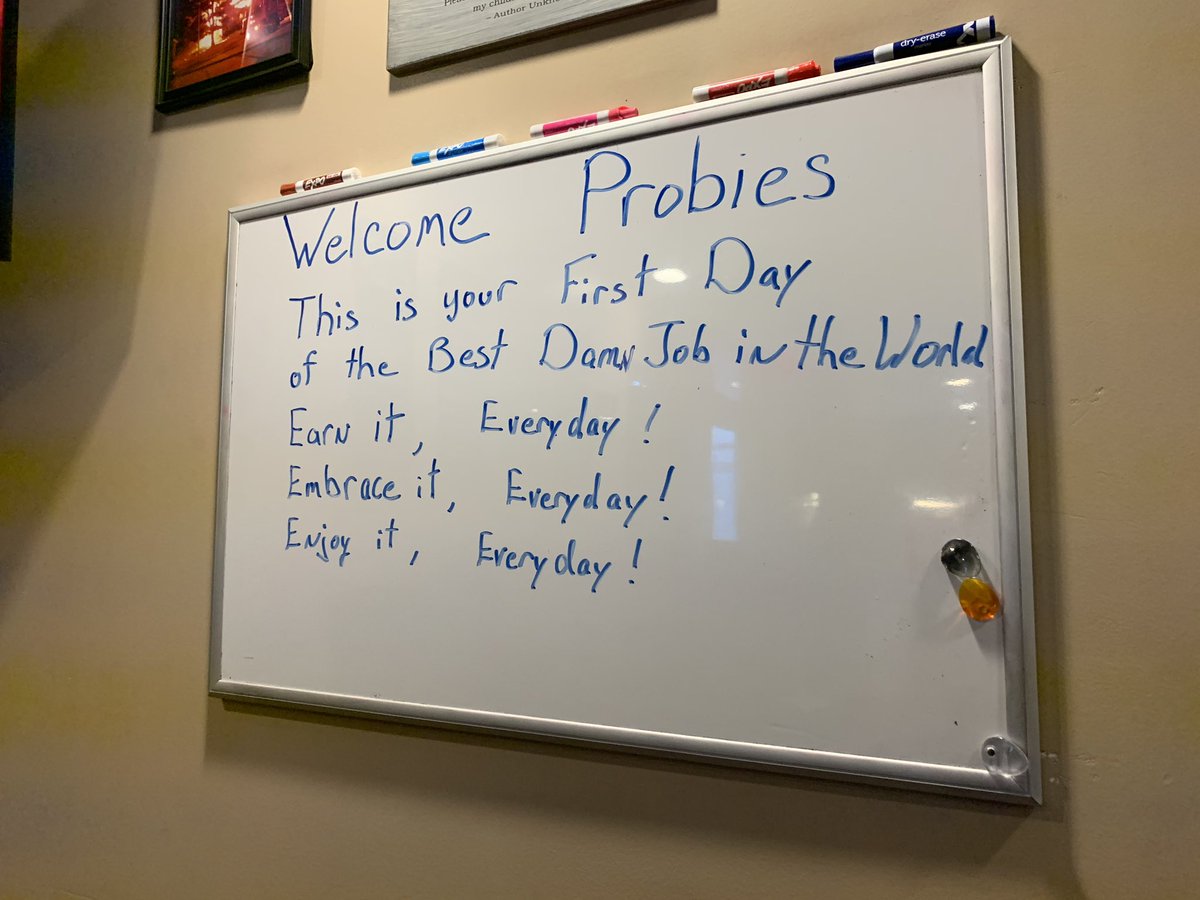 my chil
– Author Unkn
dry-erase
Welcome Probies
This is your First Day
of the Best Damn Job in the World
Earn it, Everyday!
Embrace it, Everyday!
Enjoy it, Everyday!